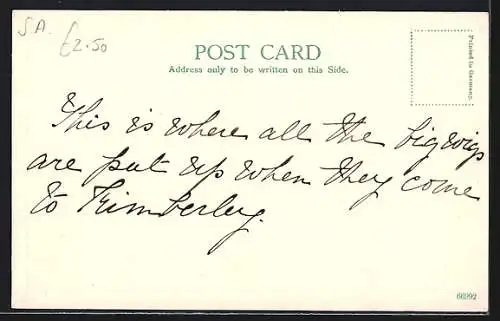 S.A.
£2.50
POST CARD
Address only to be written on this Side.
Printed in Germany.
This is where all the big wigs
are put up when they come
to Kimberley.
66992